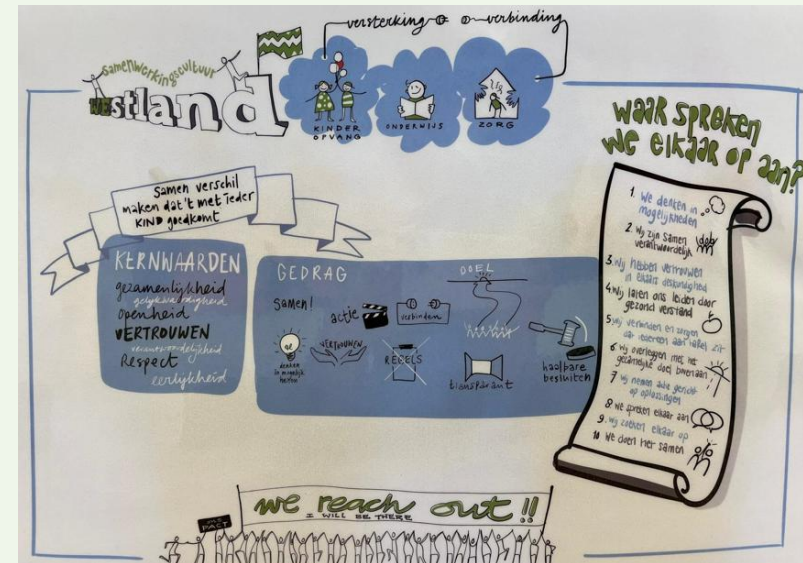 versterking verbinding
Samenwerkingscultuur
WEstland
KINDER
OPVANG
ONDERWIJS
ZORG
WAAR SPREKEN
WE ELKAAR OP AAN?
Samen verschil
maken dat 't met ieder
KIND goedkomt
KERNWAARDEN
gezamenlijkheid
gelijkwaardigheid
openheid
VERTROUWEN
verantwoordelijkheid
Respect
eerlijkheid
GEDRAG
DOEL
Samen!
actie
verbinden
denken
in mogelijk
heden
VERTROUWEN
REGELS
transparant
haalbare
besluiten
1. We denken in
mogelijkheden
2. Wij zijn samen
verantwoordelijk
3. Wij hebben vertrouwen
in elkaars deskundigheid
4. Wij laten ons leiden door
gezond verstand
5. Wij verbinden en zorgen
dat iedereen aan tafel zit
6. Wij overleggen met het
gezamenlijke doel bovenaan
7. Wij nemen actie gericht
op oplossingen
8. We spreken elkaar aan
9. Wij zoeken elkaar op
10. We doen het samen
we reach out!!
I WILL BE THERE
PACT